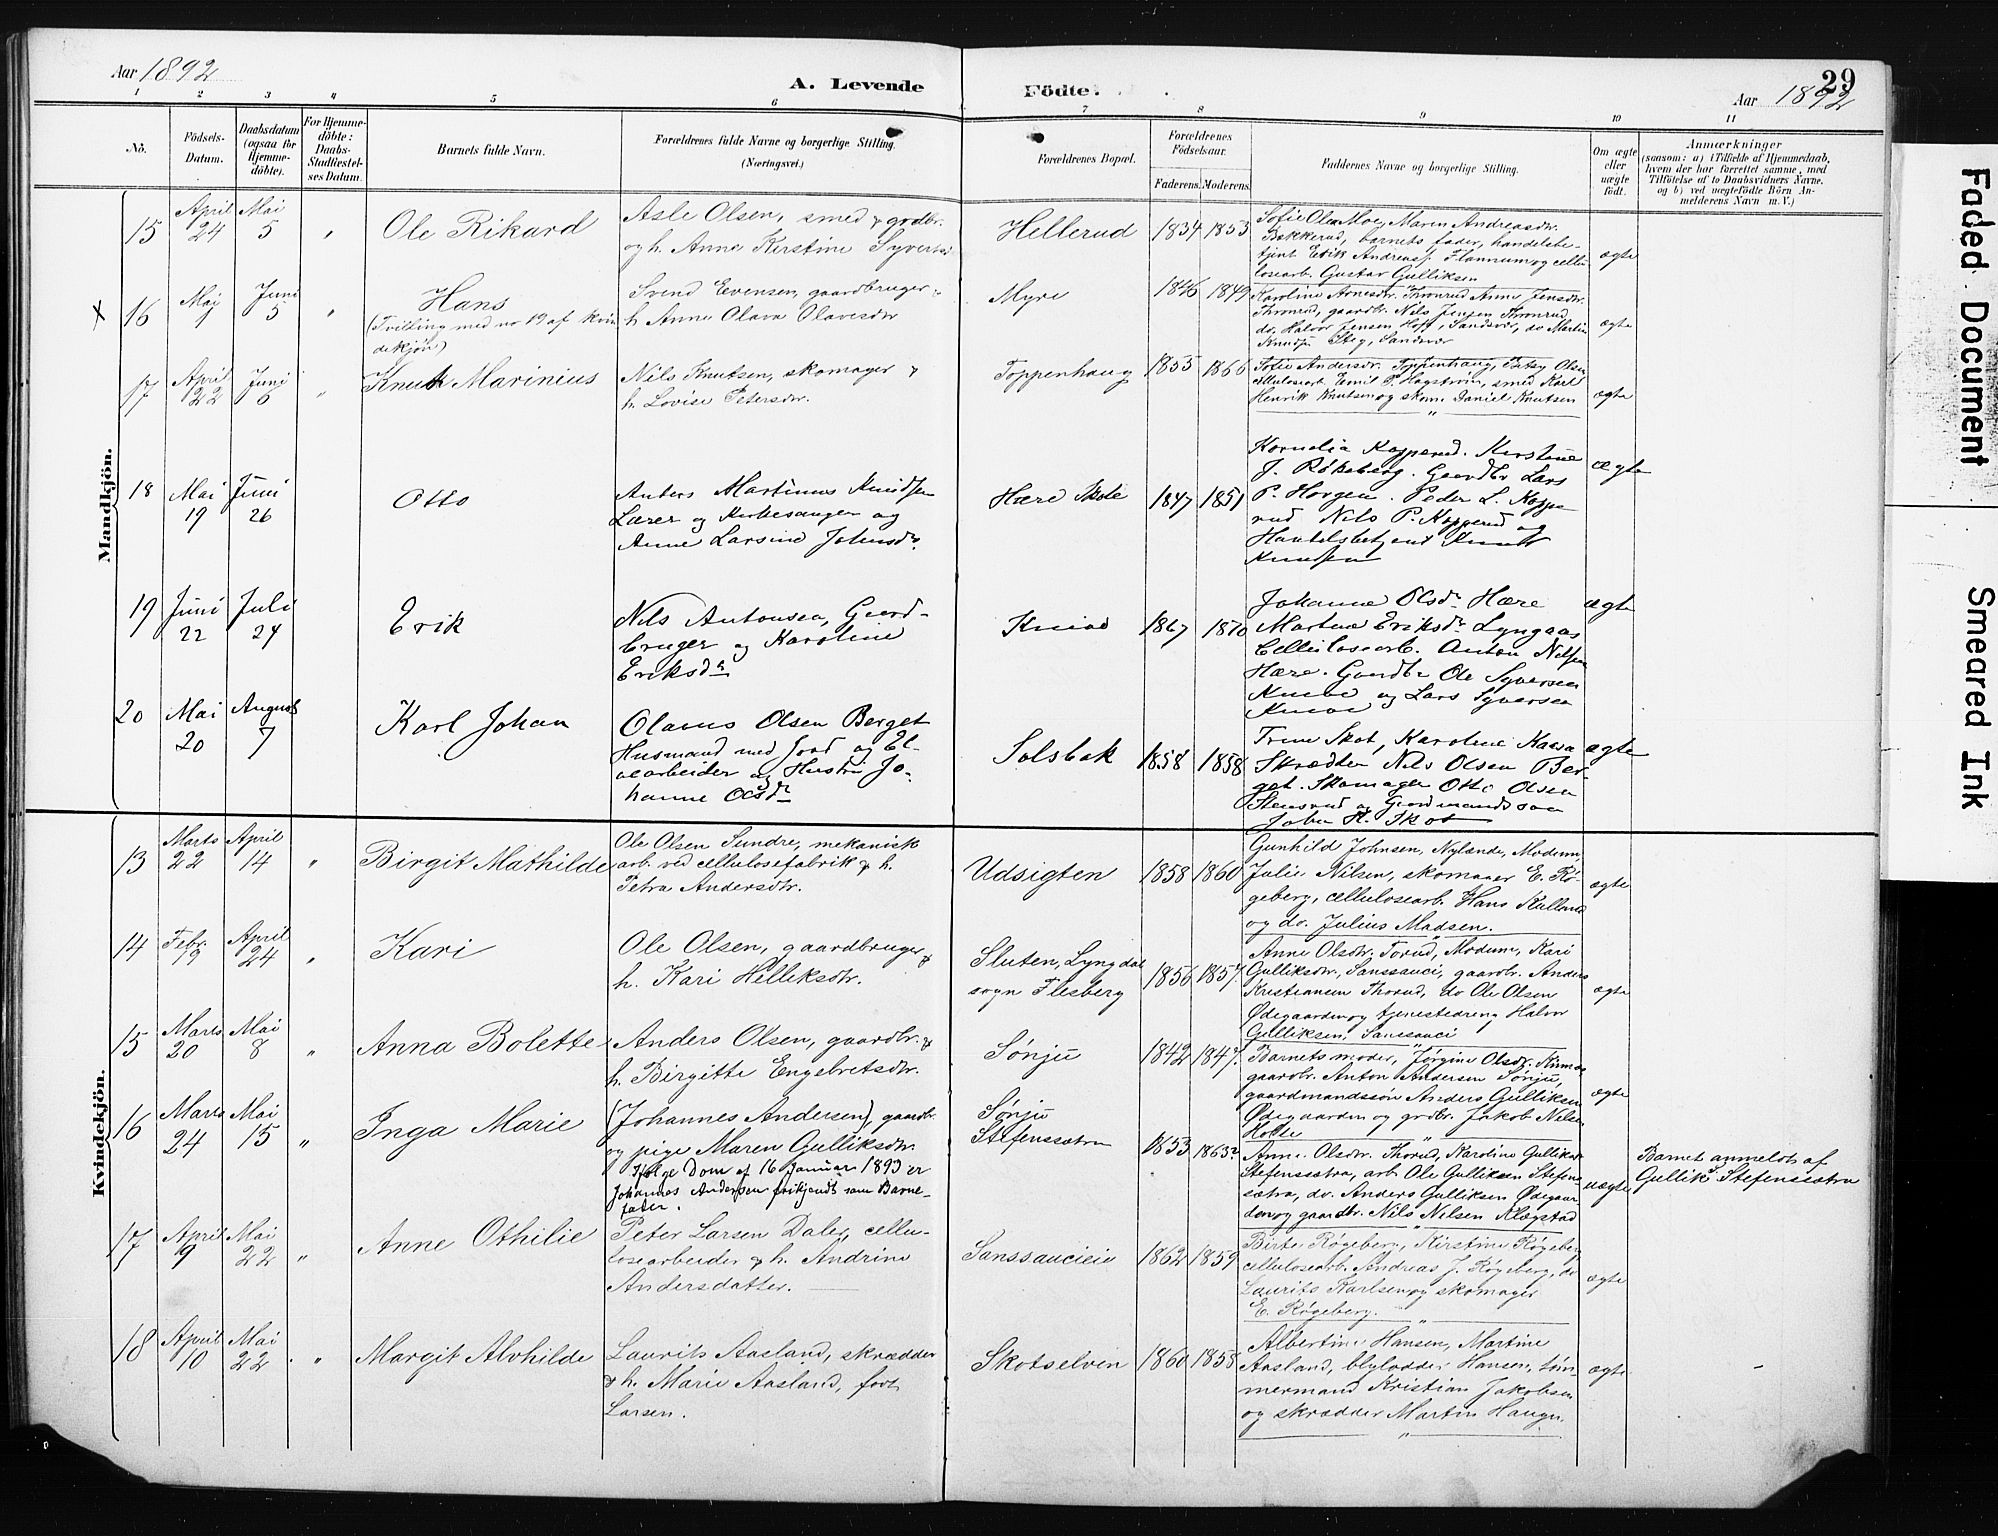 Aar 1892
A. Levende Fødte.
29
Aar 1892
1 2 3 4 5 6 7 8 9 10 11
No.
Fødsels-
Datum.
Daabsdatum
(ogsaa for
Hjemme-
döbte).
For Hjemme-
döbte:
Daabs-
Stadfæstel-
ses Datum.
Barnets fulde Navn.
Forældrenes fulde Navne og borgerlige Stilling.
(Næringsvei.)
Forældrenes Bopæl.
Forældrenes
Födselsaar.
Faderens. Moderens.
Faddernes Navne og borgerlige Stilling.
Om ægte
eller
uægte
födt.
Anmærkninger
(saasom: a) i Tilfælde af Hjemmedaab,
hvem der har forrettet samme, med
Tilföielse af to Daabsvidners Navne.
og b) ved uægtefödte Börn An-
melderens Navn m. V.)
Mandkjön.
15
April
24
Mai
5
"
Ole Rikard
Asle Olsen, smed & grdbr.
og h. Anne Kirstine Syverts
Hellerud
1834 1853
Sofie Olsen Moe, Maren Andreasdtr.
Bakkerud, barnets fader, handelsbe-
tjent Erik Andreass. Flannum og cellu
losearb. Gustav Gulliksen
ægte
x
16
Mai
1
Juni
5
"
Hans
(Tvilling med no 19 af kvin
dekjøn)
Svend Evensen, gaardbruger &
h. Anne Olava Olavesdtr
Myre
1846 1849
Karoline Arnesdtr. Thronrud, Anne Jensdtr.
Thronrud, gaardbr. Nils Jensen Thronrud,
do. Halvor Jensen Hoff, Sandsvær, do Martin
Knuds. Steg, Sandsvær
ægte
17
April
22
Juni
6
"
Knut Marinius
Nils Knutsen, skomager &
h. Lovise Petersdtr.
Toppenhaug
1855 1866
Sofie Andersdr. Toppenhaug, Betsy Olsen
cellulosearb. Emil P. Hagstrøm, smed Karl
Henrik Knutsen og skom. Daniel Knutsen
"
ægte
18
Mai
19
Juni
26
Otto
Anders Martinus Knudsen
Lærer og Kirkesanger og
Anne Larsine Johnsdr.
Hære Skole
1847 1851
Kornelia Kopperud. Kirstine
J. Røkeberg. Gaardbr Lars
P. Horgen. Peder L. Koppe
rud Nils P. Kopperud og
Handelsbetjent Knut
Knudsen
ægte
19
Juni
22
Juli
24
Erik
Nils Antonsen, Gaard-
bruger og Karoline
Eriksdr
Knive
1867 1870
Johanne Olsdr. Hære
Martine Eriksdr. Lyngaas
Cellulosearb. Anton Nilsen
Hære. Gaardbr Ole Syversen
Knive og Lars Syversen
Knive
ægte
20
Mai
20
August
7
Karl Johan
Olaus Olsen Berget
Husmand med Jord og El-
vearbeider og Hustru Jo-
hanne Olsdr
Solsbak
1858 1858
Trine Skot, Karoline Kassa
Skrædder Nils Olsen Ber-
get. Skomager Otto Olsen
Stensrud og Gaardmandssøn
John H. Skot
ægte
Kvindekjön.
13
Marts
22
April
14
"
Birgit Mathilde
Ole Olsen Sundre, mekanisk
arb. ved cellulosefabrik & h.
Petra Andersdtr.
Udsigten
1858 1860
Gunhild Johnsen, Nylænde, Modum,
Julie Nilsen, skomager E. Rø-
geberg, cellulosearb. Hans Kulland
og do. Julius Madsen.
ægte
14
Febr.
19
April
24
"
Kari
Ole Olsen, gaardbruger &
h. Kari Helliksdtr.
Sluten, Lyngdal
sogn Flesberg
1856 1857.
Anne Olsdtr. Torud, Modum, Kari
Gulliksdtr, Sanssouci, gaardbr. Anders
Kristiansen Thorud, do Ole Olsen
Ødegaarden og tjenestedreng Halvor
Gulliksen, Sanssouci
ægte
15
Marts
20
Mai
8
"
Anna Bolette
Anders Olsen, gaardbr. &
h. Birgitte Engebretsdtr.
Sønju
1842 1847.
Barnets moder, Jørgine Olsdtr. Kinnas
gaardbr. Anton Andersen Sønju,
gaardmandssøn Anders Gulliksen
Ødegaarden og grdbr. Jakob Nilsen
Holte
ægte
16
Marts
24
Mai
15
"
Inga Marie
(Johannes Andersen), gaardbr.
og pige Maren Gulliksdtr.
Ifølge Dom af 16 Januar 1893 er
Johannes Andersen frikjendt som Barne-
fader.
Sønju
Stefenssætra
1853 1863?
Anne Olsdtr. Thorud, Karoline Gulliksdr
Stefenssætra, arb. Ole Gulliksen Stefens
sætra, do. Anders Gulliksen Ødegaar
den og gaardbr. Nils Nilsen Klægstad
uægte
Barnet anmeldt af
Gullik Stefenssætra
17
April
9
Mai
22
"
Anne Othilie
Peter Larsen Daler, cellu-
losearbeider & h. Andrine
Andersdatter.
Sanssoucieie
1862 1859
Birte Røgeberg, Kirstine Røgeberg
cellulosearb. Andreas J. Røgeberg, do
Laurits Karlsen og skomager
E. Røgeberg.
ægte
18
April
10
Mai
22
"
Margit Alvhilde
Laurits Aasland, skrædder
& h. Marie Aasland, født
Larsen.
Skotselven
1860 1858
Albertine Hansen, Martine
Aasland, blylodder Hansen, tøm-
mermand Kristian Jakobsen
og skrædder Martin Haugen.
"
ægte
Faded Document
Smeared Ink